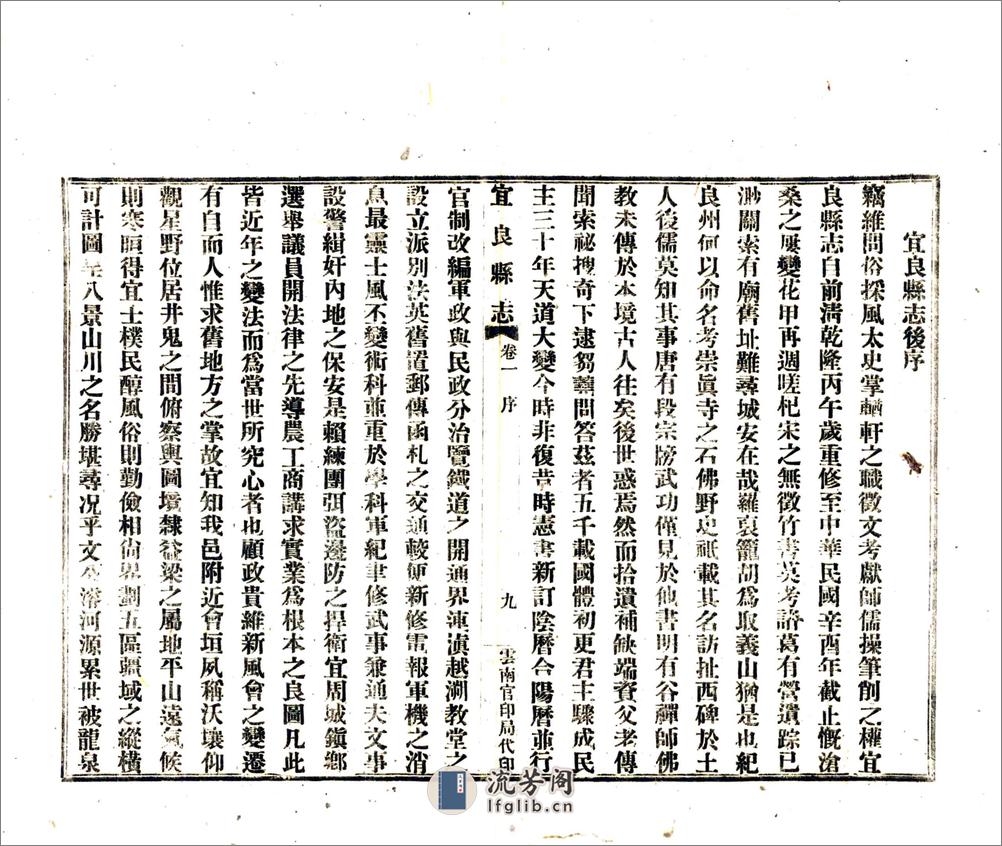 宜良縣志後序
竊維問俗採風太史掌輶軒之職徵文考獻師儒操筆削之權宜
良縣志自前淸乾隆丙午歲重修至中華民國辛酉年截止慨滄
桑之屢變花甲再週嗟杞宋之無徵竹書莫考諸葛有營遺踪已
渺關索有廟舊址難尋城安在哉羅裒籠胡爲取義山猶是也紀
良州何以命名考崇眞寺之石佛野史祗載其名訪扯西碑於土
人後儒莫知其事唐有段宗牓武功僅見於他書明有谷禪師佛
教未傳於本境古人往矣後世惑焉然而拾遺補缺端資父老傳
聞索祕搜奇下逮芻蕘問答茲者五千載國體初更君主驟成民
主三十年天道大變今時非復昔時憲書新訂陰曆合陽曆並行
宜良縣志 卷一 序 九 雲南官印局代印
官制改編軍政與民政分治覽鐵道之開通界連滇越溯教堂之
設立派別法英舊置郵傳函札之交通較便新修電報軍機之消
息最靈士風丕變術科並重於學科軍紀聿修武事兼通夫文事
設警緝奸內地之保安是賴練團弭盜邊防之捍衛宜周城鎭鄉
選舉議員開法律之先導農工商講求實業爲根本之良圖凡此
皆近年之變法而爲當世所究心者也顧政貴維新風會之變遷
有自而人惟求舊地方之掌故宜知我邑附近會垣夙稱沃壤仰
觀星野位居井鬼之間俯察輿圖境隸益梁之屬地平山遠氣候
則寒暄得宜士樸民醇風俗則勤儉相尙界劃五區疆域之縱橫
可計圖呈八景山川之名勝堪尋况乎文公濬河源累世被龍泉
流芳阁
lfglib.cn